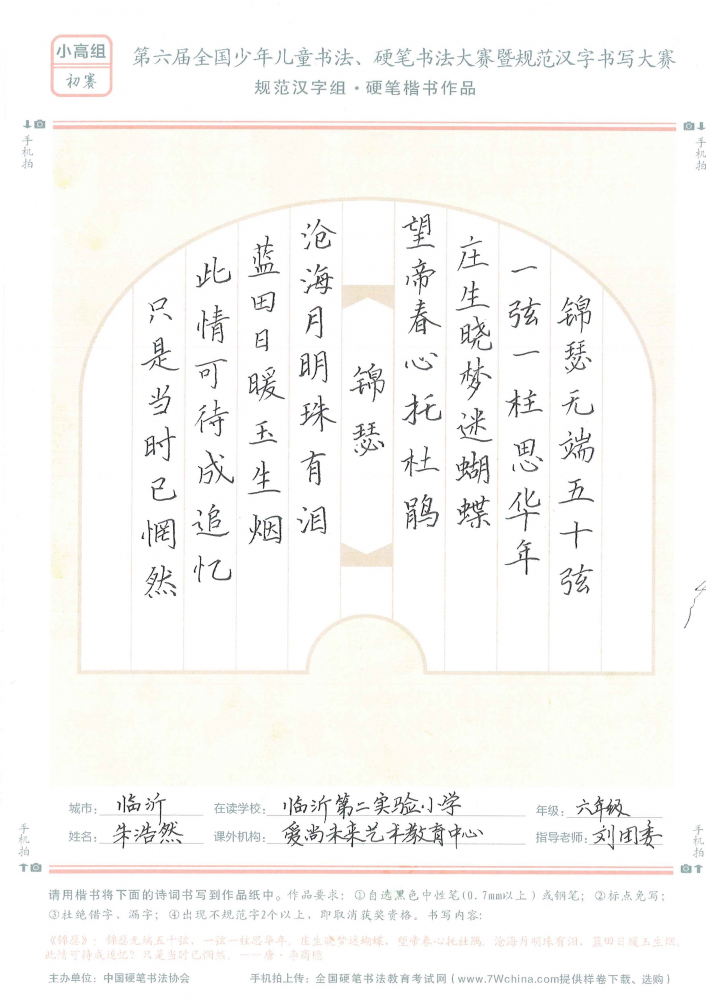 小高组
初赛
第六届全国少年儿童书法、硬笔书法大赛暨规范汉字书写大赛
规范汉字组·硬笔楷书作品
手机拍
手机拍
锦瑟无端五十弦
一弦一柱思华年
庄生晓梦迷蝴蝶
望帝春心托杜鹃
锦瑟
沧海月明珠有泪
蓝田日暖玉生烟
此情可待成追忆
只是当时已惘然
城市：临沂 在读学校：临沂第二实验小学 年级：六年级
姓名：朱浩然 课外机构：爱尚未来艺术教育中心 指导老师：刘田委
手机拍
手机拍
请用楷书将下面的诗词书写到作品纸中。作品要求：①自选黑色中性笔(0.7mm以上)或钢笔；②标点免写；
③杜绝错字、漏字；④出现不规范字2个以上，即取消获奖资格。书写内容：
《锦瑟》：锦瑟无端五十弦，一弦一柱思华年。庄生晓梦迷蝴蝶，望帝春心托杜鹃。沧海月明珠有泪，蓝田日暖玉生烟。
此情可待成追忆？只是当时已惘然。——唐·李商隐
主办单位：中国硬笔书法协会 手机拍上传：全国硬笔书法教育考试网（www.7Wchina.com提供样卷下载、选购）